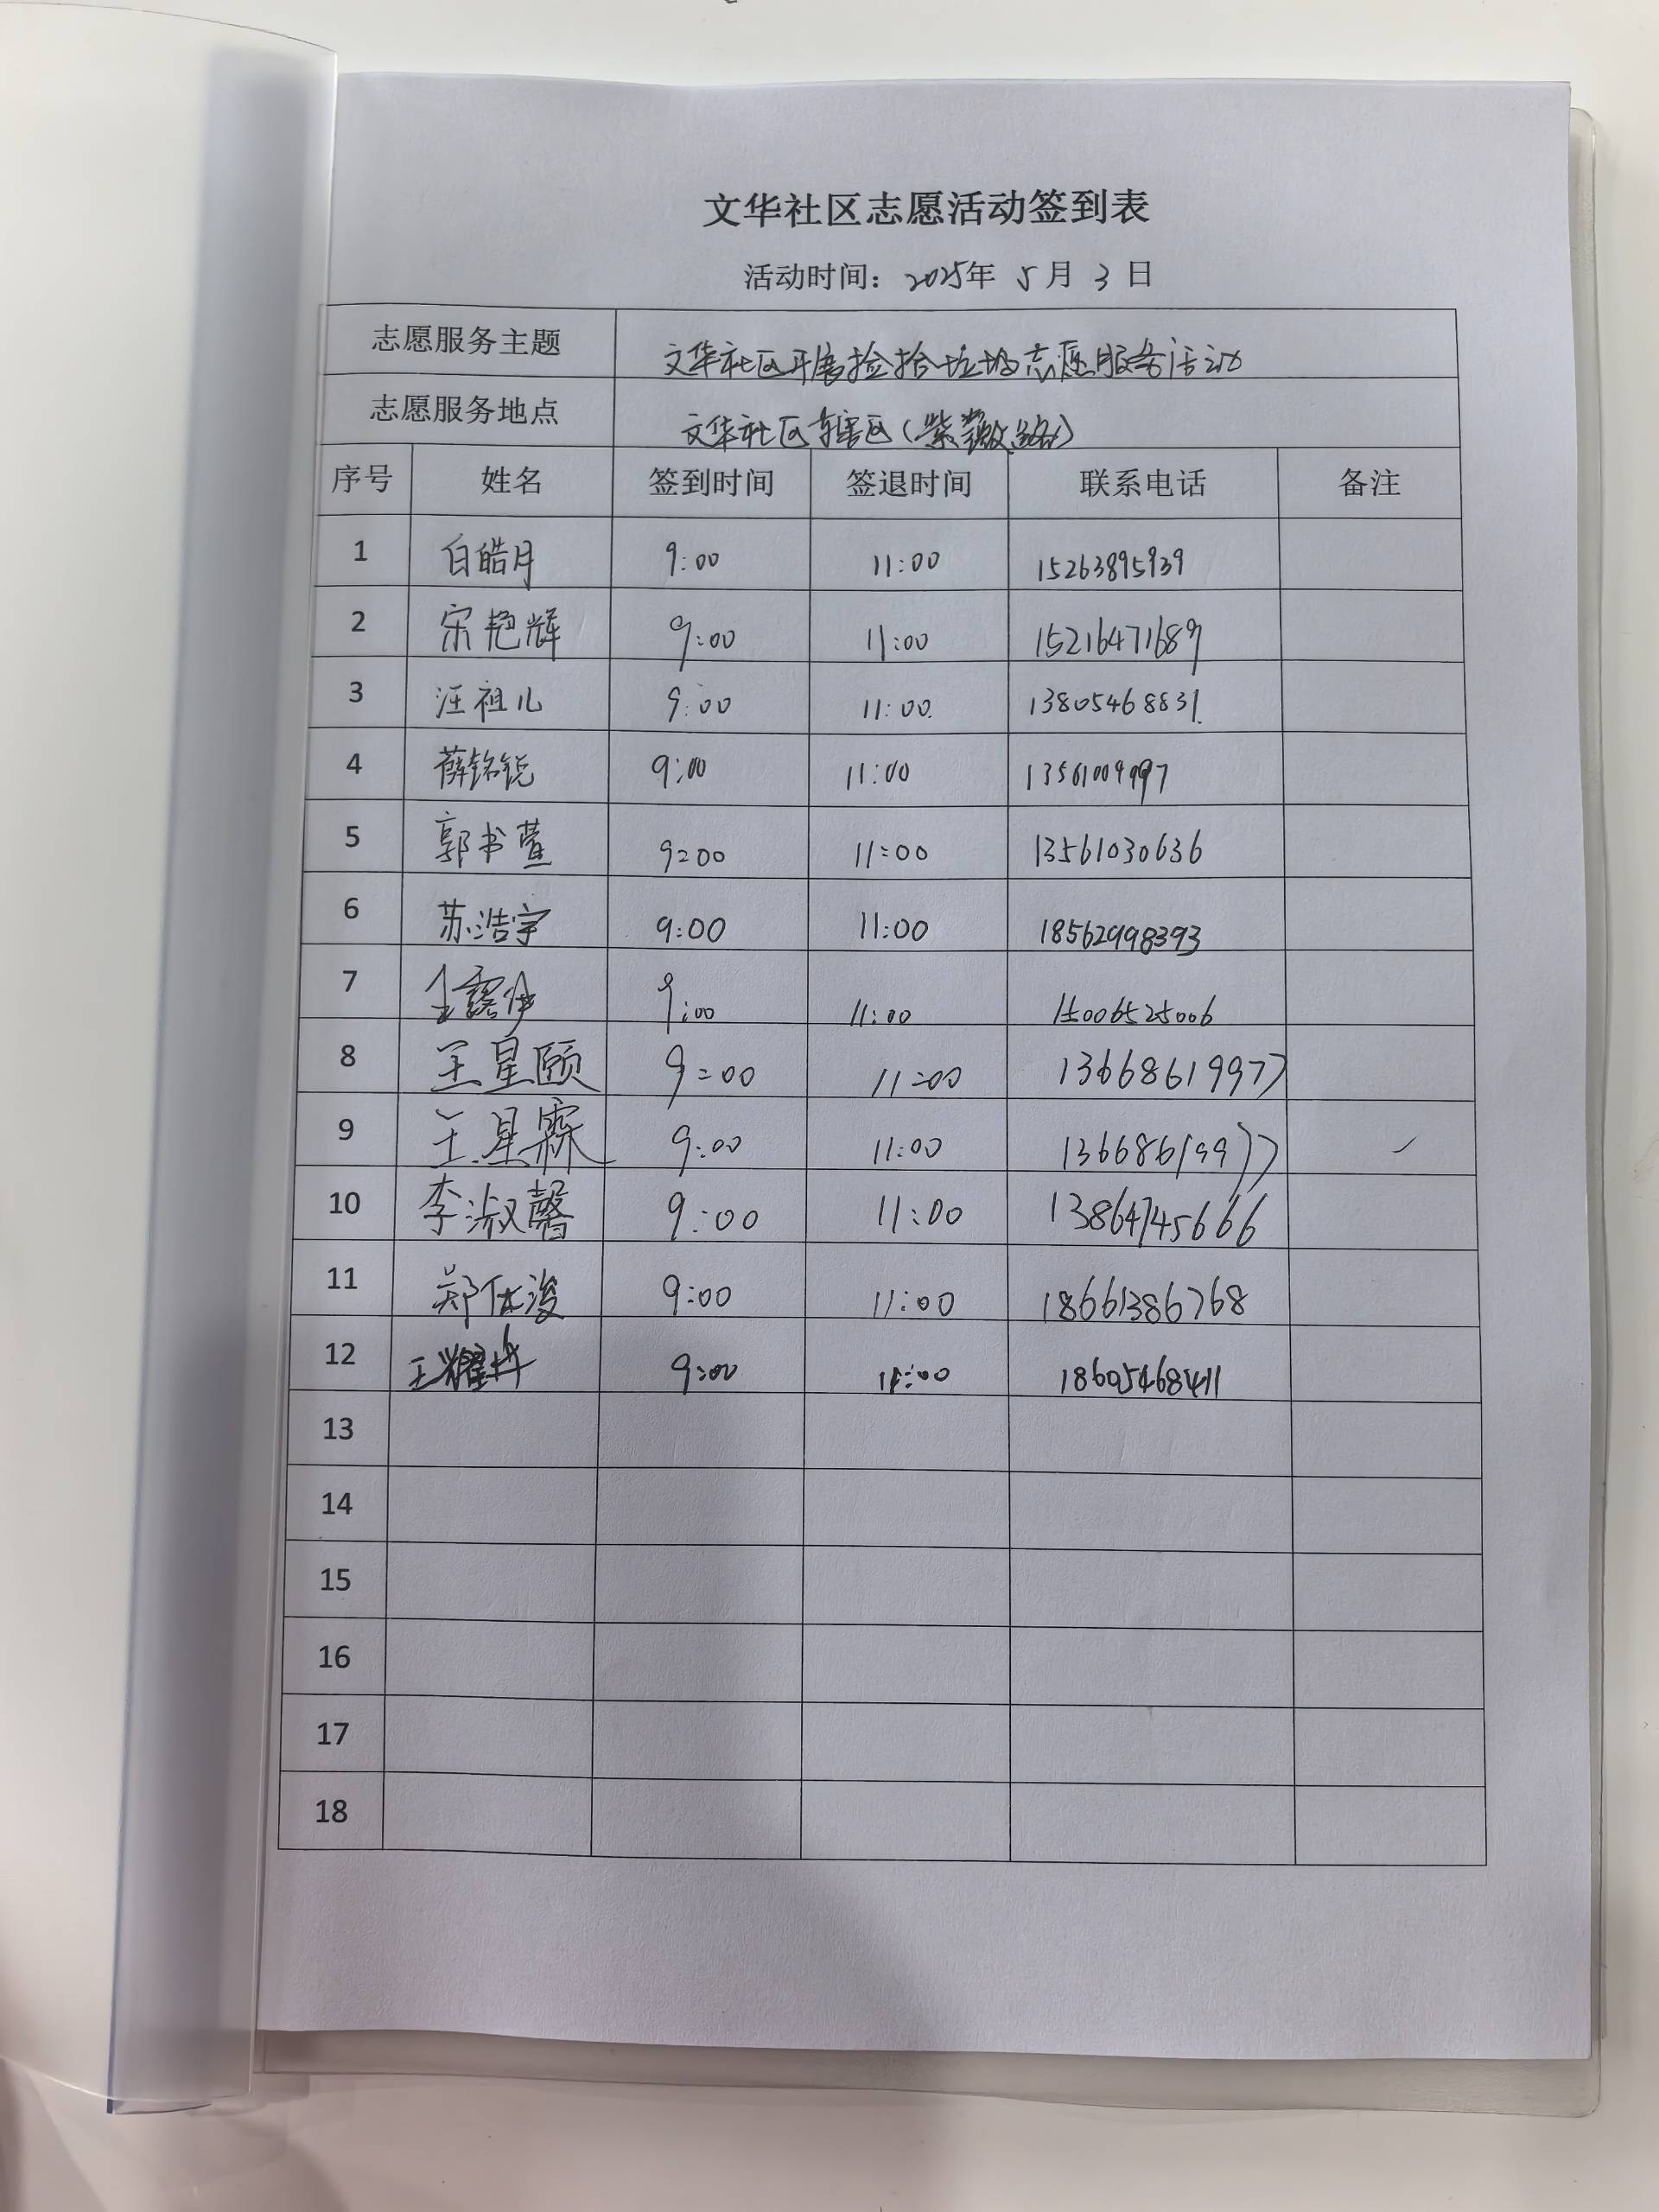 文华社区志愿活动签到表
活动时间：2025年 5 月 3 日
志愿服务主题 文华社区开展捡拾垃圾志愿服务活动
志愿服务地点 文华社区辖区（紫薇路）
序号 姓名 签到时间 签退时间 联系电话 备注
1 白皓月 9:00 11:00 15263895939
2 宋艳辉 9:00 11:00 15216471689
3 汪祖儿 9:00 11:00 13805468831
4 薛铭锐 9:00 11:00 13561009997
5 郭书萱 9:00 11:00 13561030636
6 苏浩宇 9:00 11:00 18562998393
7 9:00 11:00 15006525006
8 王星颐 9:00 11:00 13668619977
9 王星霖 9:00 11:00 13668619977
10 李淑馨 9:00 11:00 13864745666
11 郑依浚 9:00 11:00 18661386768
12 9:00 11:00 18605468411
13
14
15
16
17
18